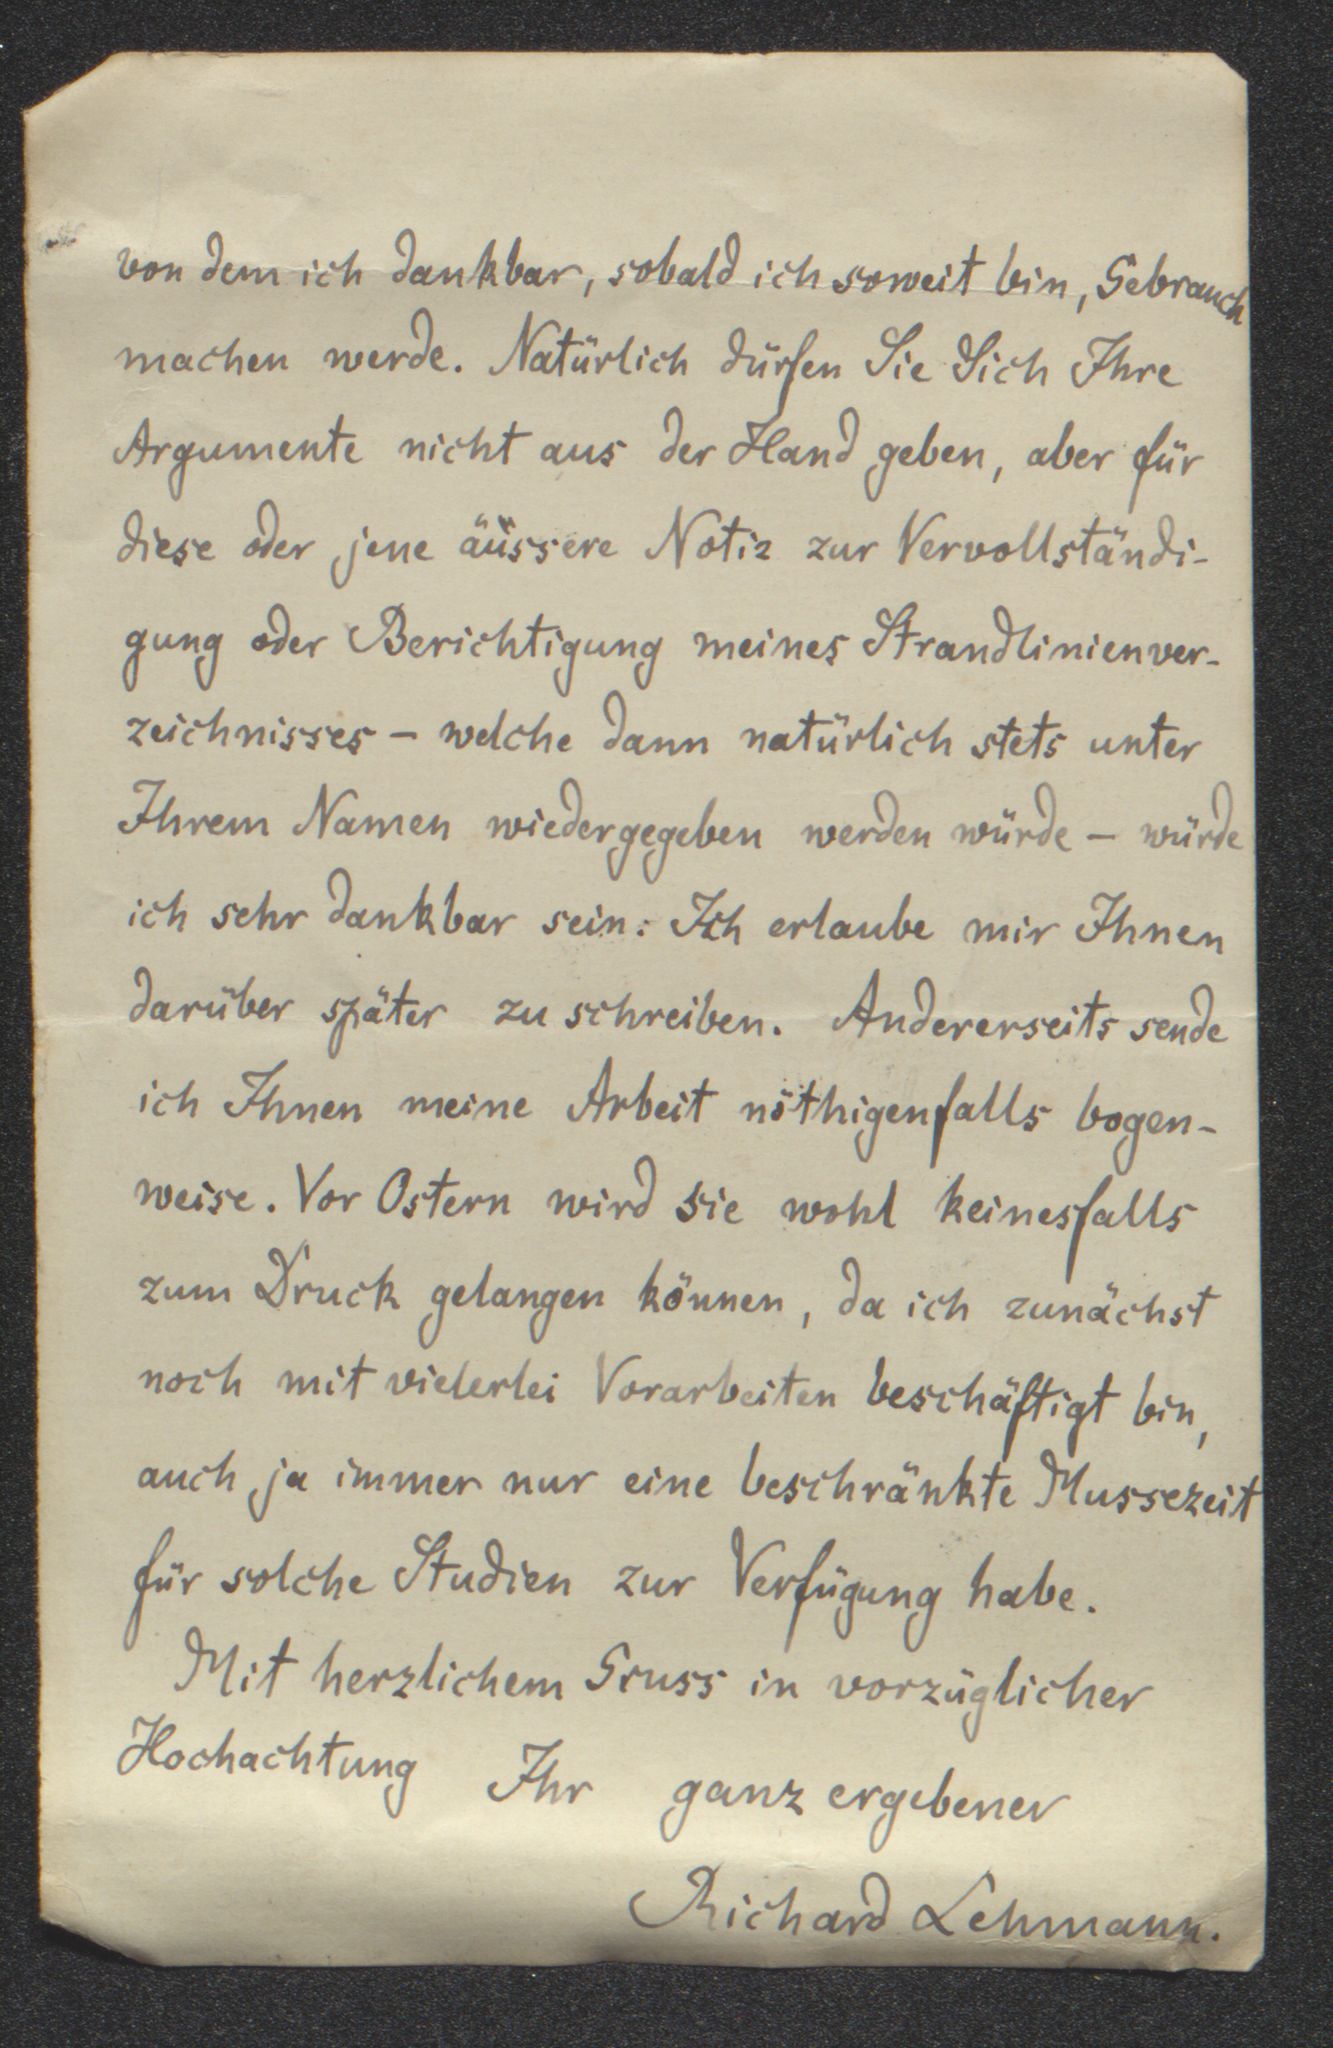 von dem ich dankbar, sobald ich soweit bin, Gebrauch
machen werde. Natürlich dürfen Sie Sich Ihre
Argumente nicht aus der Hand geben, aber für
diese oder jene äüssere Notiz zur Vervollständi-
gung oder Berichtigung meines Strandlinienver-
zeichnisses – welche dann natürlich stets unter
Ihrem Namen wiedergegeben werden würde – würde
ich sehr dankbar sein. Ich erlaube mir Ihnen
darüber später zu schreiben. Andererseits sende
ich Ihnen meine Arbeit nöthigenfalls bogen-
weise. Vor Ostern wird sie wohl keinesfalls
zum Druck gelangen können, da ich zunächst
noch mit vielerlei Vorarbeiten beschäftigt bin,
auch ja immer nur eine beschränkte Mussezeit
für solche Studien zur Verfügung habe.
Mit herzlichem Gruss in vorzüglicher
Hochachtung Ihr ganz ergebener
Richard Lehmann.